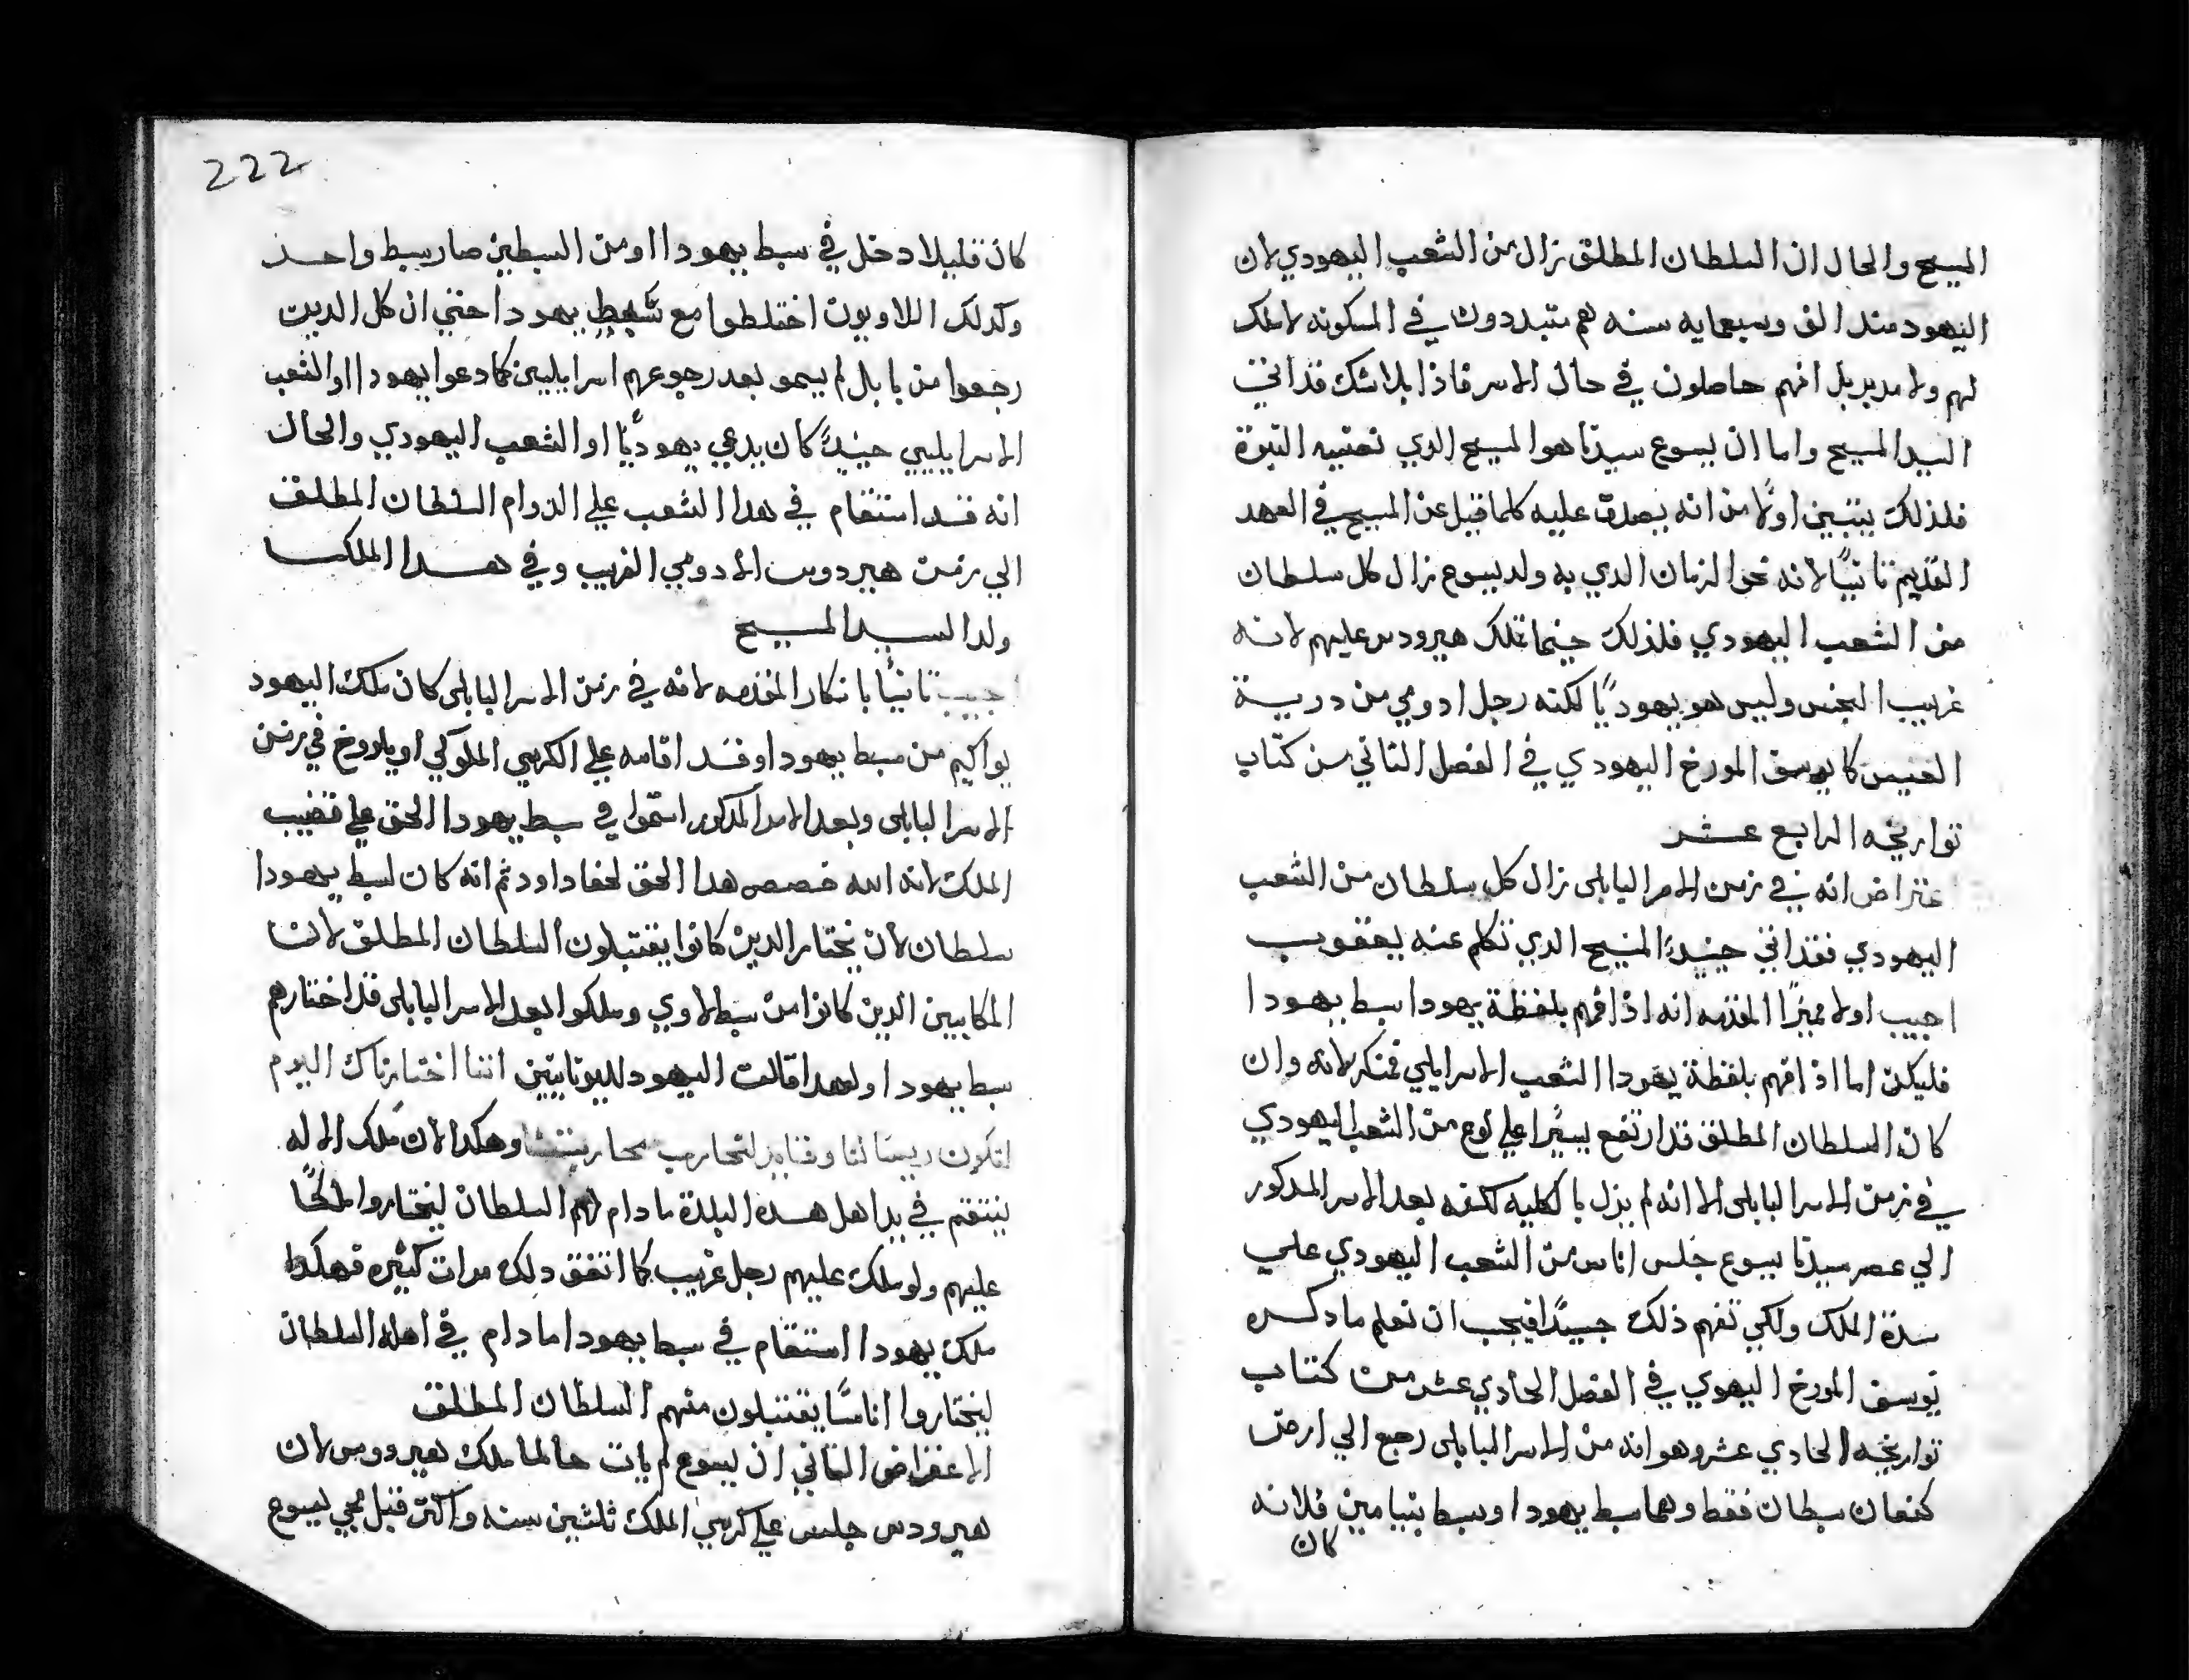 المسيح والحال ان السلطان المطلق زال من الشعب اليهودي لان
اليهود مند الف وسبعمايه سنه هم متبددون في المسكونه لا ملك
لهم ولا مدبر بل انهم حاصلون في حال الاسر فاذا بلا شك قد اتي
السيد المسيح واما ان يسوع سيدنا هو المسيح الدي تعنيه النبوة
فلذلك يتبين اولًا من انه يصدق عليه كلما قيل عن المسيح في العهد
القديم تانيًا لانه نحو الزمان الدي به ولد يسوع زال كل سلطان
من الشعب اليهودي فلذلك حينما تملك هيرودس عليهم لانه
غريب الجنس وليس هو يهوديًا لكنه رجل ادومي من درية
العيس كا يوسف المورخ اليهودي في الفصل التاني من كتاب
تواريخه الرابع عشر
عتراض انه في زمن الاسر البابلي زال كل سلطان من الشعب
اليهودي فقد اتي حينيدًا المسيح الدي تكلم عنه يعقوب
اجيب اولا مميزًا المقدمه انه اذا فهم بلفظة يهودا سبط يهودا
فليكن اما اذا فهم بلفظة يهودا الشعب الاسرايلي فمنكر لانه وان
كان السلطان المطلق قد ارتفع يسيرًا علي نوع من الشعب اليهودي
في زمن الاسر البابلي الا انه لم يزل بالكليه لكنه بعد الاسر المدكور
الي عصر سيدنا يسوع جلس اناس من الشعب اليهودي علي
سدة الملك ولكي تفهم ذلك جيدًا فيجب ان تعلم ما دكره
يوسف المورخ اليهوي في الفصل الحادي عشر من كتاب
تواريخه الحادي عشر وهو انه من الاسر البابلي رجع الي ارض
كنعان سبطان فقط وهما سبط يهودا وسبط بنيامين فلانه
كان
222
كان قليلا دخل في سبط يهودا او من السبطين صار سبط واحد
وكدلك اللاويون اختلطوا مع سبط يهودا حتي ان كل الدين
رجعوا من بابل لم يسمو بعد رجوعهم اسراييليين كما دعوا يهودا او الشعب
الاسراييلي حينيدًا كان يدعي يهوديًا او الشعب اليهودي والحال
انه قد استقام في هدا الشعب علي الدوام السلطان المطلق
الي زمن هيردوس الادومي الغريب وفي هدا الملك
ولد السيد المسيح
جيب تانيًا بانكار المقدمه لانه في زمن الاسر البابلي كان ملك اليهود
يواكيم من سبط يهودا وقد اقامه علي الكرسي الملوكي اويلروخ في زمن
الاسر البابلي وبعد الاسر المدكور استموا في سبط يهودا الحق علي قضيب
الملك لانه الله خصص هدا الحق لحفا داود ثم انه كان لسبط يهودا
سلطان لان يختار الدين كانوا يقتبلون السلطان المطلق لان
المكابيين الذين كانوا من سبط لاوي وملكوا بعد الاسر البابلي قد اختارهم
سبط يهودا ولهدا قالت اليهود لليوناتيين اننا اختارناك اليوم
لتكون ريسًا لنا وقايد لتحارب محاربتنا وهكدا لان ملك الاله
يستقم في يد اهل هده البلدة ما دام لهم السلطان ليختاروا ملكًا
عليهم ولو ملك عليهم رجل غريب كا اتفق دلك مرات كثيره فهكدا
ملك يهودا استقام في سبط يهودا ما دام في اهله السلطان
ليختاروا اناسًا يقتبلون منهم السلطان المطلق
الاعتراض التاني ان يسوع لم يات حالما ملك هيرودس لان
هيرودس جلس علي كرسي الملك ثلثين سنه واكتر قبل مجي يسوع